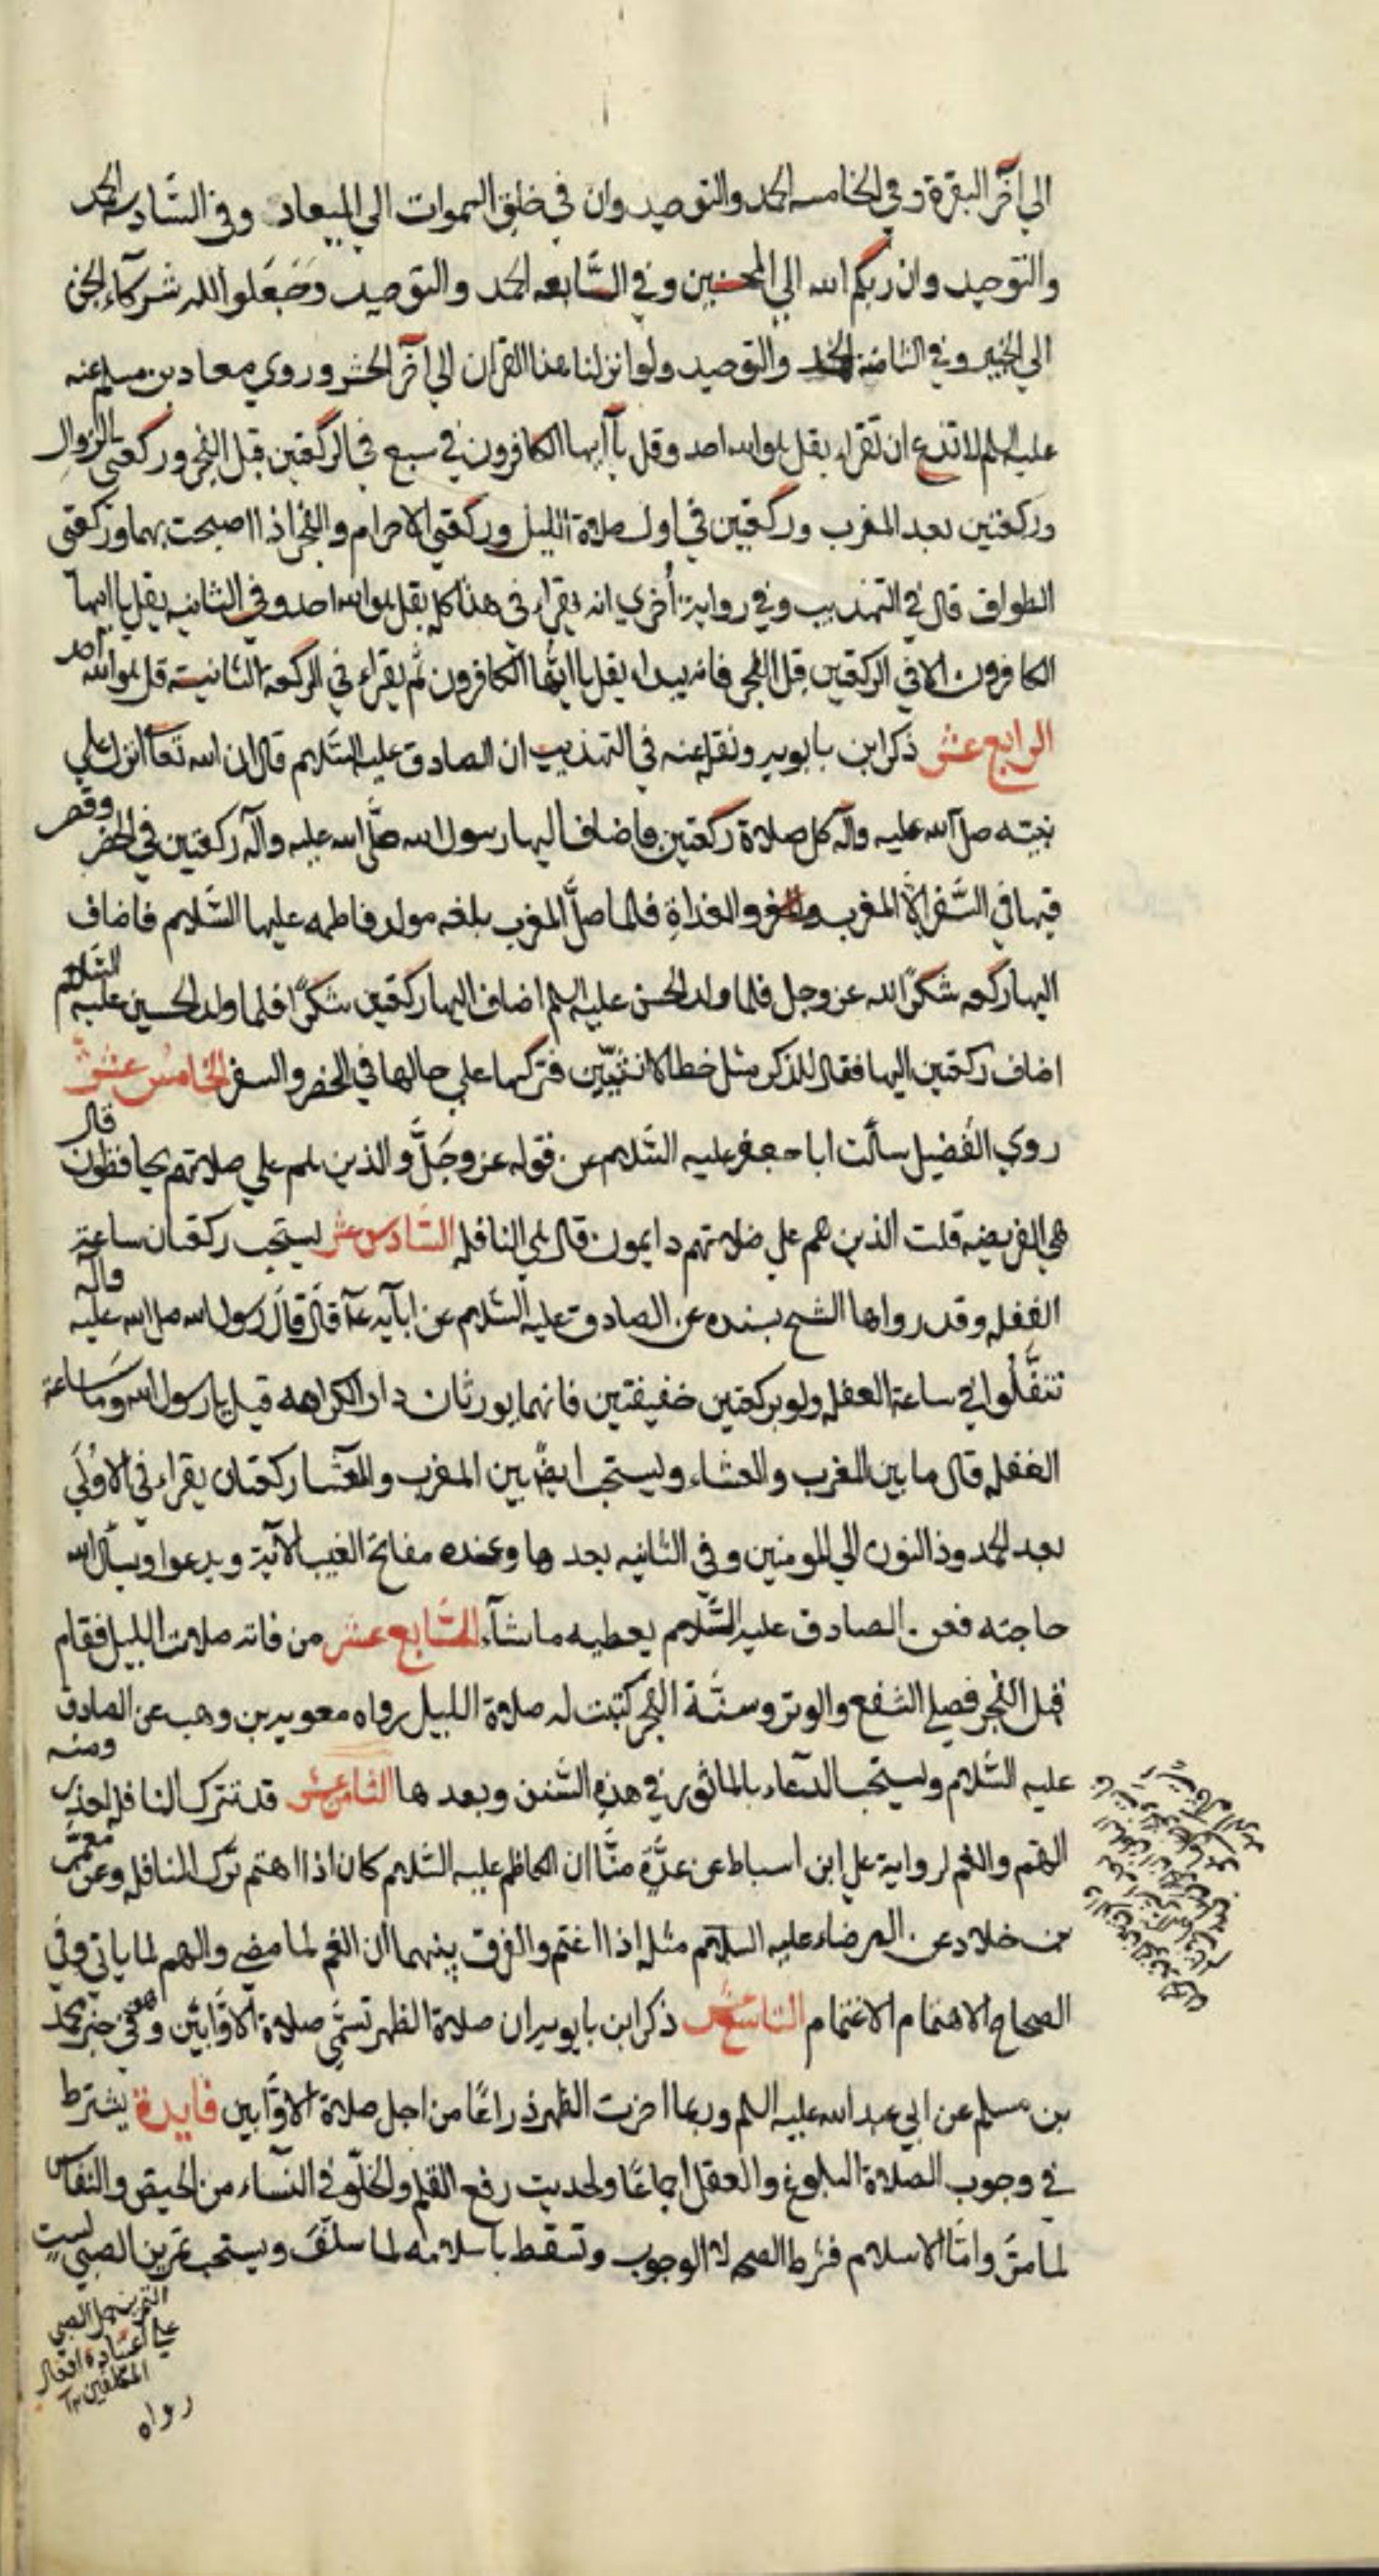 الي آخر البقرة وفي الخامسه الحمد والتوحيد وان في خلق السموات الي الميعاد وفي السّادسه الحمد
والتوحيد وان ربكم الله الي المحسنين وفي السّابعه الحمد والتوحيد وَجَعَلوا لله شركآء الجن
الي الخبير وفي الثامنه الحمد والتوحيد ولو انزلنا هذا القران الي آخر الحشر وروي معاذ بن مسلم عنه
عليه السلم لا تدع ان تقراء بقل هو الله احد وقل يآ ايها الكافرون في سبع في الركعتين قبل الفجر وركعتي الزوال
وركعتين بعد المغرب وركعتين في اول صلاة الليل وركعتي الاحرام والفجر اذا اصبحت بهما وركعتي
الطواف قال في التهذيب وفي رواية أخري انه يقراء في هذا كله بقل هو الله احد وفي الثانيه بقل يا ايها
الكافرون الا في الركعتين قبل الفجر فانه يبداء بقل يا ايّها الكافرون ثم يقراء في الركعة الثانية قل هو الله احد
الرابع عشر ذكر ابن بابويه ونقله عنه في التهذيب ان الصادق عليه السّلام قال ان الله تعآ انزل علي
نبيّه صلّ الله عليه وآله كل صلاة ركعتين فاضاف اليها رسول الله صلّي الله عليه وآله ركعتين في الحضر وقصر
فيها في السَّفر الاّ المغرب والغداةِ فلما صلَّ المغرب بلغه مولد فاطمه عليها السَّلام فاضاف
اليها ركعه شكرًا لله عز وجل فلما ولد الحسن عليه السلم اضاف اليها ركعتين شكرًا فلما ولد الحسين عليه السّلام
اضاف ركعتين اليها فقال للذكر مثل حظ الانثيين فتركها علي حالها في الحضر والسفر الخامس عشر
روي الفضيل سألت ابا جعفر عليه السّلام عن قوله عز وجَلَّ والذين هم علي صلاتهم يحافظون قال
هي الفريضه قلت الذين هم علي صلاتهم دايمون قال هي النافله السّادس عشر يستحب ركعتان ساعة
الغفله وقد رواها الشيخ بسنده عن الصادق عليه السّلام عن ابآيه عآ قال قال رسول الله صل الله عليه وآله
تنفَّلُوا في ساعة الغفله ولو بركعتين خفيفتين فانهما يورثان دار الكرامه قيل يا رسول الله وما ساعة
الغفله قال ما بين المغرب والعشاء ويستحب ايضًا بين المغرب والعشا ركعتان يقراء في الاوُلي
بعد الحمد وذا النون الي المومنين وفي الثانيه بعدها وعنده مفاتح الغيب الآية ويدعوا ويسأل الله
حاجته فعن الصادق عليه السَّلام يعطيه ما شآء السّابع عشر من فاته صلاة الليل فقام
قبل الفجر فصلي الشفع والوتر وسنّة الفجر كتبت له صلاة الليل رواه معويه بن وهب عن الصادق
عليه السّلام ويستحب الدعاء بالماثور في هذه السّنن وبعدها الثامن عشر قد تترك النافله لعذر ومنه
الهّم والغم لرواية علي ابن اسباط عن عدّة منّا ان الكاظم عليه السّلام كان اذا اهتم ترك النافله وعن معمّر
بن خلاد عن الرضاء عليه السلام مثله اذا اغتم والفرق بينهما ان الغم لما مضي والهم لما ياتي وفي
الصحاح الاهتمام الاغتمام التاسع عشر ذكر ابن بابويه ان صلاة الظهر تسمّي صلاة الاوّابين وهو في خبر محمد
بن مسلم عن ابي عبد الله عليه السلم وربما اخرت الظهر ذراعًا من اجل صلاة الاوّابين فايدة يشترط
في وجوب الصلاة البلوغ والعقل اجماعًا ولحديث رفع القلم والخلّو في النسآء من الحيض والنفاس
لما مرّ وامّا الاسلام فشرط الصحه لا الوجوب وتسقط باسلامه لما سلف ويستحب تمرين الصبي لست
التمرين حمل الصبي
علي اعتياده افعال
المكلفين ١٢
رواه